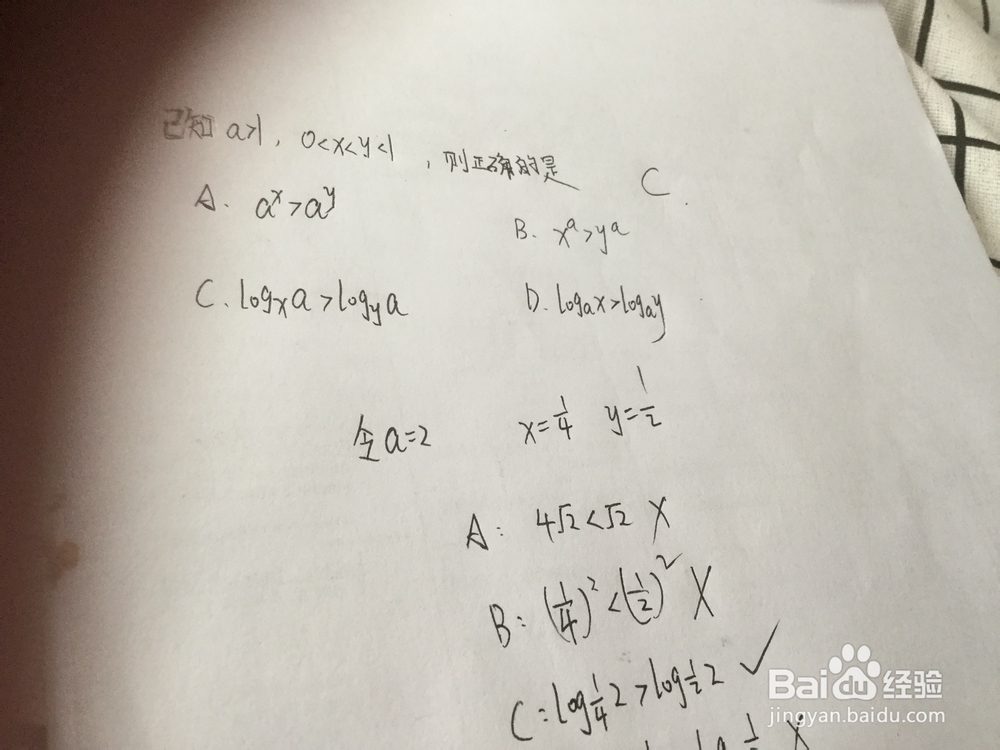 已知 a>1, 0<x<y<1, 则正确的是 C.
A. aˣ>aʸ
B. xᵃ>yᵃ
C. logₓa>logᵧa
D. logₐx>logₐy
全a=2 x=1/4 y=1/2
A: 4√2<√2 X
B: (1/4)²<(1/2)² X
C: log1/4 2>log1/2 2 ✓
Baidu经验
jingyan.baidu.com